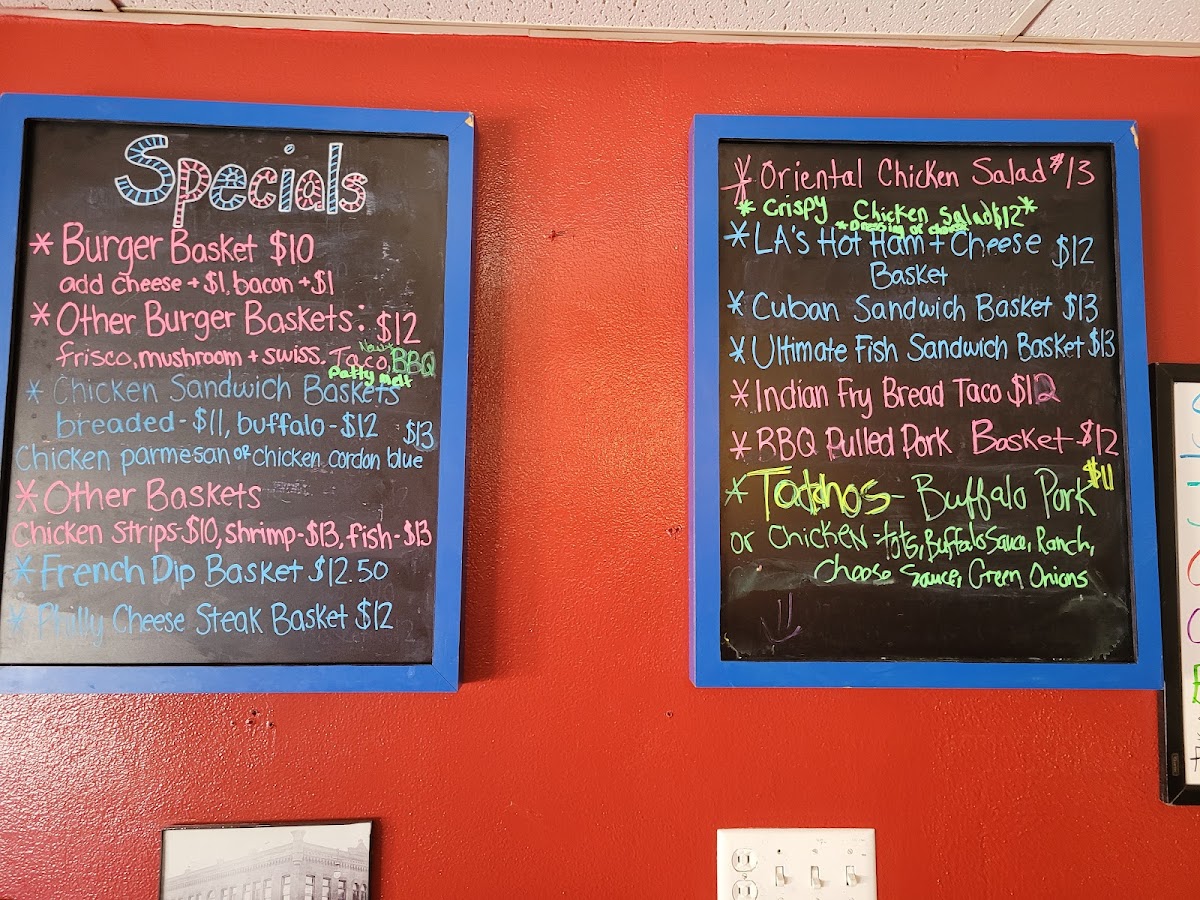 Specials
* Burger Basket $10
add cheese + $1, bacon + $1
* Other Burger Baskets: $12
frisco, mushroom + swiss, Taco, BBQ
New
Patty melt
* Chicken Sandwich Baskets
breaded - $11, buffalo - $12 $13
Chicken parmesan or chicken cordon blue
* Other Baskets
Chicken strips-$10, shrimp-$13, fish-$13
* French Dip Basket $12.50
* Philly Cheese Steak Basket $12
* Oriental Chicken Salad $13
* Crispy Chicken Salad $12 *
* Dressing of choice
* LA's Hot Ham + Cheese $12
Basket
* Cuban Sandwich Basket $13
* Ultimate Fish Sandwich Basket $13
* Indian Fry Bread Taco $12
* BBQ Pulled Pork Basket - $12
* Tatchos - Buffalo Pork $11
or Chicken - tots, Buffalo Sauce, Ranch,
Cheese Sauce, Green Onions